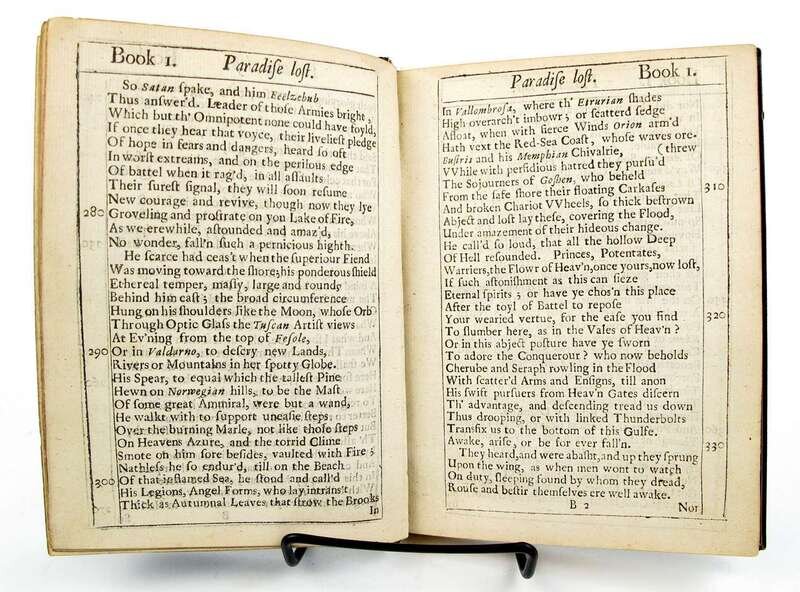 Book 1. Paradiſe loſt.
So Satan ſpake, and him Beelzebub
Thus anſwer'd. Leader of thoſe Armies bright,
Which but th' Omnipotent none could have foyld,
If once they hear that voyce, their livelieſt pledge
Of hope in fears and dangers, heard ſo oft
In worſt extreams, and on the perilous edge
Of battel when it rag'd, in all aſſaults
Their ſureſt ſignal, they will ſoon reſume
New courage and revive, though now they lye
280 Groveling and proſtrate on yon Lake of Fire,
As we erewhile, aſtounded and amaz'd,
No wonder, fall'n ſuch a pernicious highth.
He ſcarce had ceas't when the ſuperiour Fiend
Was moving toward the ſhore; his ponderous ſhield
Ethereal temper, maſſy, large and round,
Behind him caſt; the broad circumference
Hung on his ſhoulders like the Moon, whoſe Orb
Through Optic Glaſs the Tuſcan Artiſt views
At Ev'ning from the top of Feſole,
290 Or in Valdarno, to deſcry new Lands,
Rivers or Mountains in her ſpotty Globe.
His Spear, to equal which the talleſt Pine
Hewn on Norwegian hills, to be the Maſt
Of ſome great Ammiral, were but a wand,
He walkt with to ſupport uneaſie ſteps
Over the burning Marle, not like thoſe ſteps
On Heavens Azure, and the torrid Clime
Smote on him ſore beſides, vaulted with Fire;
Nathleſs he ſo endur'd, till on the Beach
300 Of that inflamed Sea, he ſtood and call'd
His Legions, Angel Forms, who lay intrans't
Thick as Autumnal Leaves that ſtrow the Brooks
In
Paradiſe loſt. Book 1.
In Vallombroſa, where th' Etrurian ſhades
High overarch't imbowr; or ſcatterd ſedge
Afloat, when with fierce Winds Orion arm'd
Hath vext the Red-Sea Coaſt, whoſe waves ore-
Buſiris and his Memphian Chivalrie, (threw
VVhile with perfidious hatred they purſu'd
The Sojourners of Goſhen, who beheld
From the ſafe ſhore their floating Carkaſes 310
And broken Chariot VVheels, ſo thick beſtrown
Abject and loſt lay theſe, covering the Flood,
Under amazement of their hideous change.
He call'd ſo loud, that all the hollow Deep
Of Hell reſounded. Princes, Potentates,
Warriers, the Flowr of Heav'n, once yours, now loſt,
If ſuch aſtoniſhment as this can ſieze
Eternal ſpirits; or have ye chos'n this place
After the toyl of Battel to repoſe
Your wearied vertue, for the eaſe you find 320
To ſlumber here, as in the Vales of Heav'n?
Or in this abject poſture have ye ſworn
To adore the Conquerour? who now beholds
Cherube and Seraph rowling in the Flood
With ſcatter'd Arms and Enſigns, till anon
His ſwift purſuers from Heav'n Gates diſcern
Th' advantage, and deſcending tread us down
Thus drooping, or with linked Thunderbolts
Transfix us to the bottom of this Gulfe.
Awake, ariſe, or be for ever fall'n. 330
They heard, and were abaſht, and up they ſprung
Upon the wing, as when men wont to watch
On duty, ſleeping found by whom they dread,
Rouſe and beſtir themſelves ere well awake.
B 2 Nor